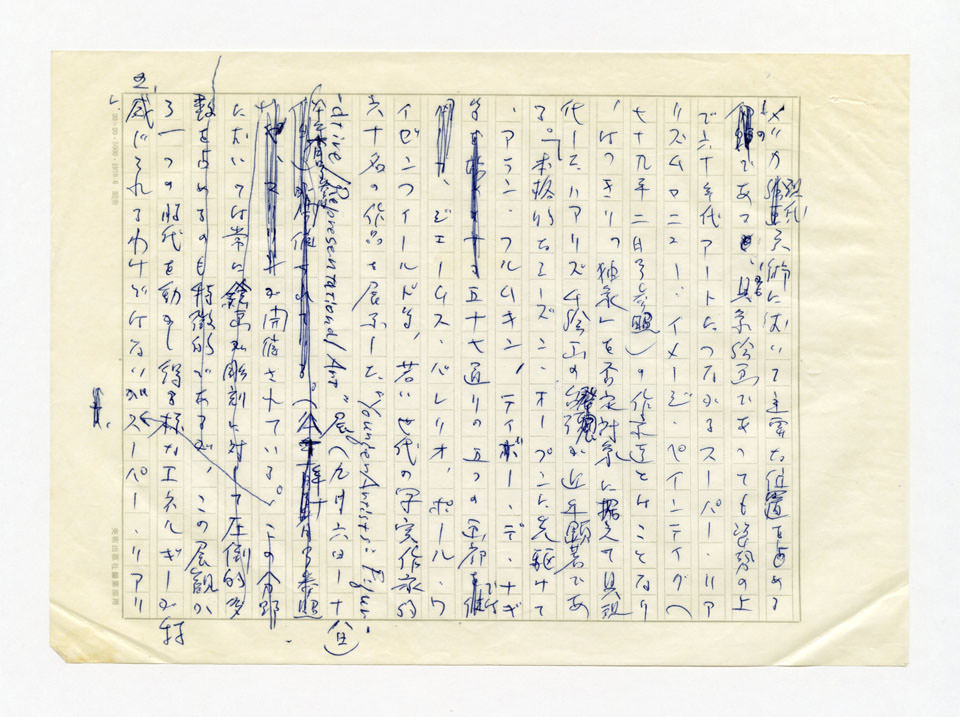 メリカ現代美術において主要な位置を占める
のであるが、具象絵画であっても姿勢の上
で六十年代アートにつながるスーパー・リア
リズムやニュー・イメージ・ペインティング(
七十九年二月号参照)の作家達とはことなり
、はっきりの「抽象」を否定対象に据えて具現
代したハアリズム絵画の擡頭が近年顕著であ
る。本格的なシーズン・オープンに先駆けて
、アラン・フルムキン、ティボー・デ・ナギ
五十七通りの五つの画廊で
は、ジェームス・バレリオ、ポール・ワ
イゼンフィールド等、若い世代の写実作家約
六十名の作品を展示した "Younger Artists: Figur-
ative/Representational Art" 展(九月六日―十
八日)
が開催されている。この分野
においては常に絵画が彫刻に対して圧倒的多
数を占めるのも特徴的であるが、この展観か
ら一つの時代を動かし得る様なエネルギーが
感じられるわけではないがスーパー・リアリ
20×20
美術出版社編集部用